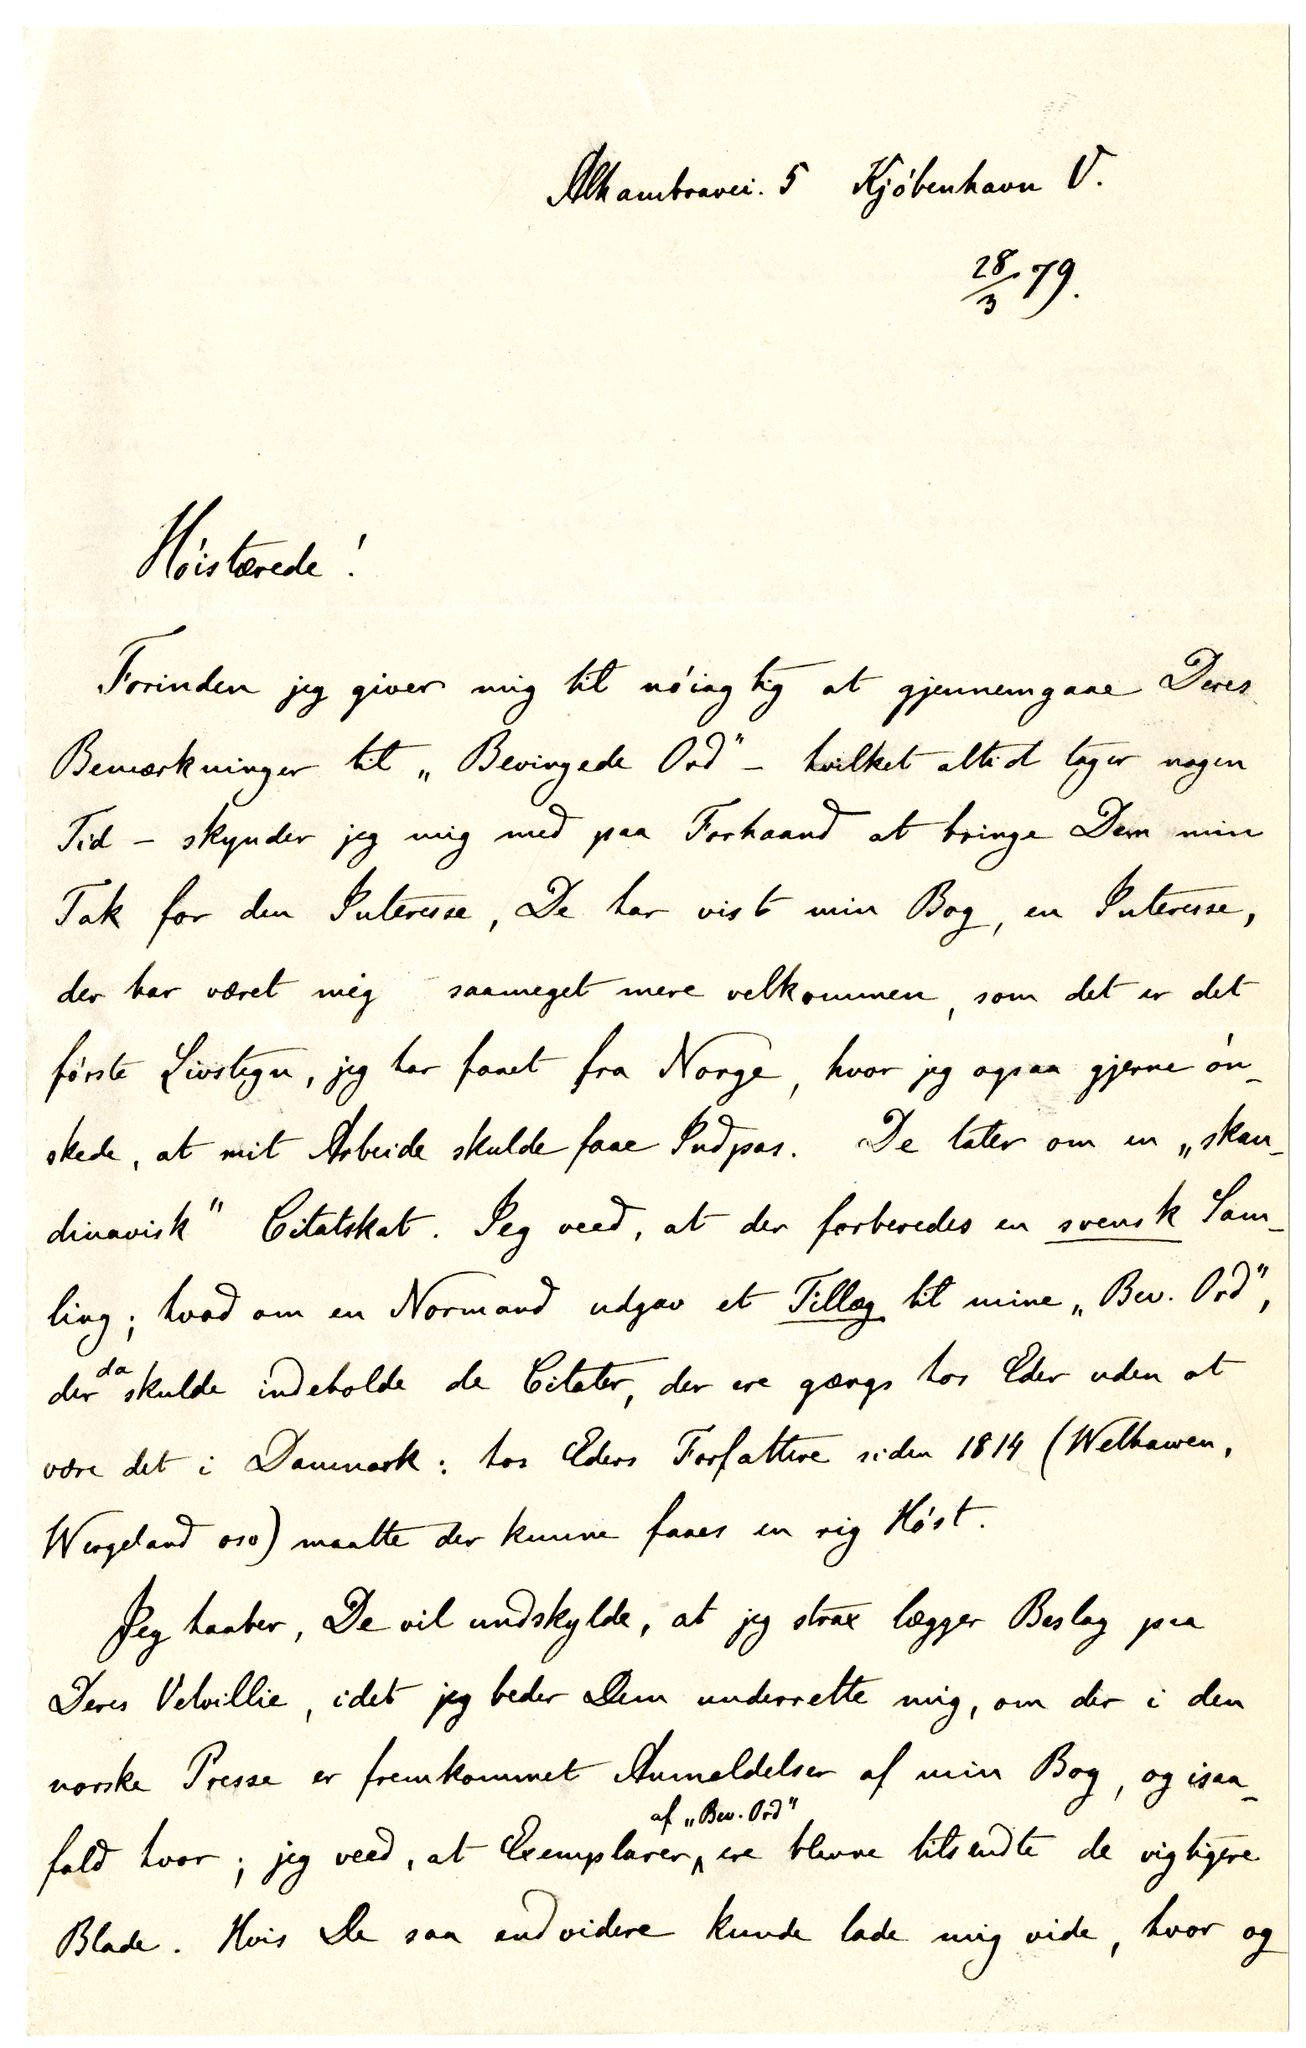 Alhambravei. 5 Kjöbenhavn V.
28/3 79.
Höistærede!
Forinden jeg giver mig til nöiagtig at gjennemgaae Deres
Bemærkninger til „Bevingede Ord" – hvilket altid tager nogen
Tid – skynder jeg mig med paa Forhaand at bringe Dem min
Tak for den Interesse, De har vist min Bog, en Interesse,
der har været mig saameget mere velkommen, som det er det
förste Livstegn, jeg har faaet fra Norge, hvor jeg ogsaa gjerne ön-
skede, at mit Arbeide skulde faae Indpas. De taler om en „skan-
dinavisk" Citatskat. Jeg veed, at der forberedes en svensk Sam-
ling; hvad om en Normand udgav et Tillæg til mine „Bev. Ord",
der da skulde indeholde de Citater, der ere gængs hos Eder uden at
være det i Danmark: hos Eders Forfattere siden 1814 (Welhaven,
Wergeland osv) maatte der kunne faaes en rig Höst.
Jeg haaber, De vil undskylde, at jeg strax lægger Beslag paa
Deres Velvillie, idet jeg beder Dem underrette mig, om der i den
norske Presse er fremkommet Anmeldelser af min Bog, og isaa-
fald hvor; jeg veed, at Exemplarer af „Bev. Ord" ere blevne tilsendte de vigtigere
Blade. Hvis De saa endvidere kunde lade mig vide, hvor og